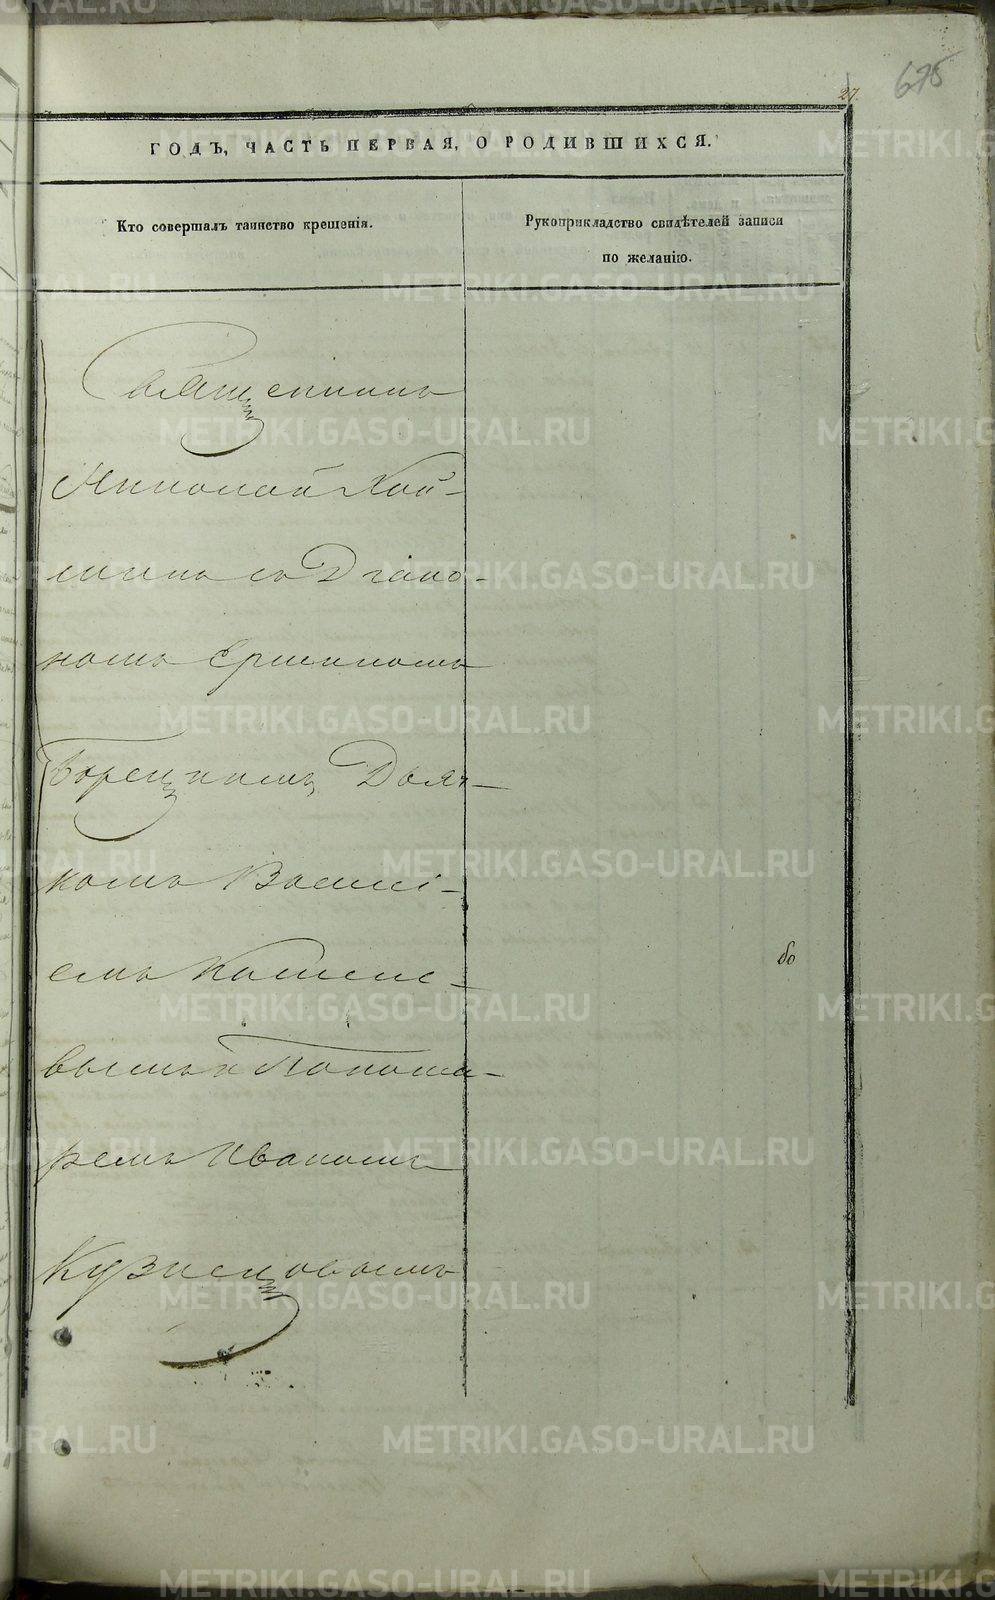 675
27.
ГОДЪ, ЧАСТЬ ПЕРВАЯ, О РОДИВШИХСЯ.
Кто совершалъ таинство крещенія.
Рукоприкладство свидѣтелей записи
по желанію.
Священникъ
Николай Хой-
минъ съ Діако-
номъ
Борецкимъ, Дьяч-
комъ Василі-
емъ
вымъ и Понома-
ремъ Иваномъ
Кузнецовымъ
METRIKI.GASO-URAL.RU